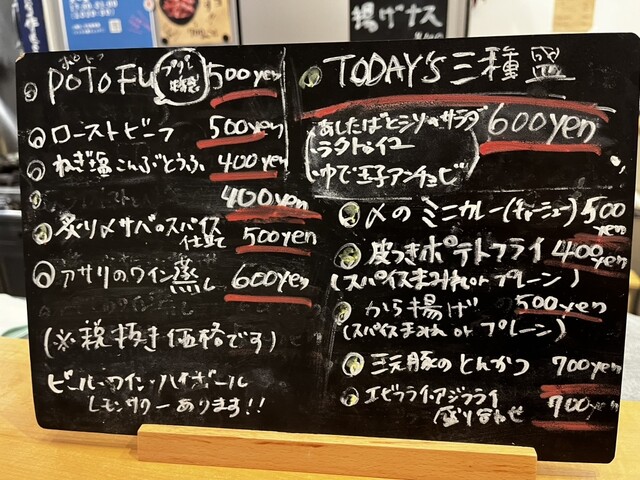 揚げナス
ポトフ
POTOFU 500yen
ローストビーフ 500yen
ねぎ塩こんぶとうふ 400yen
400yen
炙り〆サバのスパイス
仕立て 500yen
アサリのワイン蒸し 600yen
(※税抜き価格です)
ビール・ワイン・ハイボール
レモンサワーあります!!
TODAY'S 三種盛
あしたばとシソのサラダ 600yen
ラタトゥイユ
ゆで玉子アンチョビ
〆のミニカレー(キーシュー) 500yen
皮つきポテトフライ 400yen
(スパイスまみれ or プレーン)
から揚げ 500yen
(スパイスまみれ or プレーン)
三元豚のとんかつ 700yen
エビフライ・アジフライ
盛り合わせ 700yen